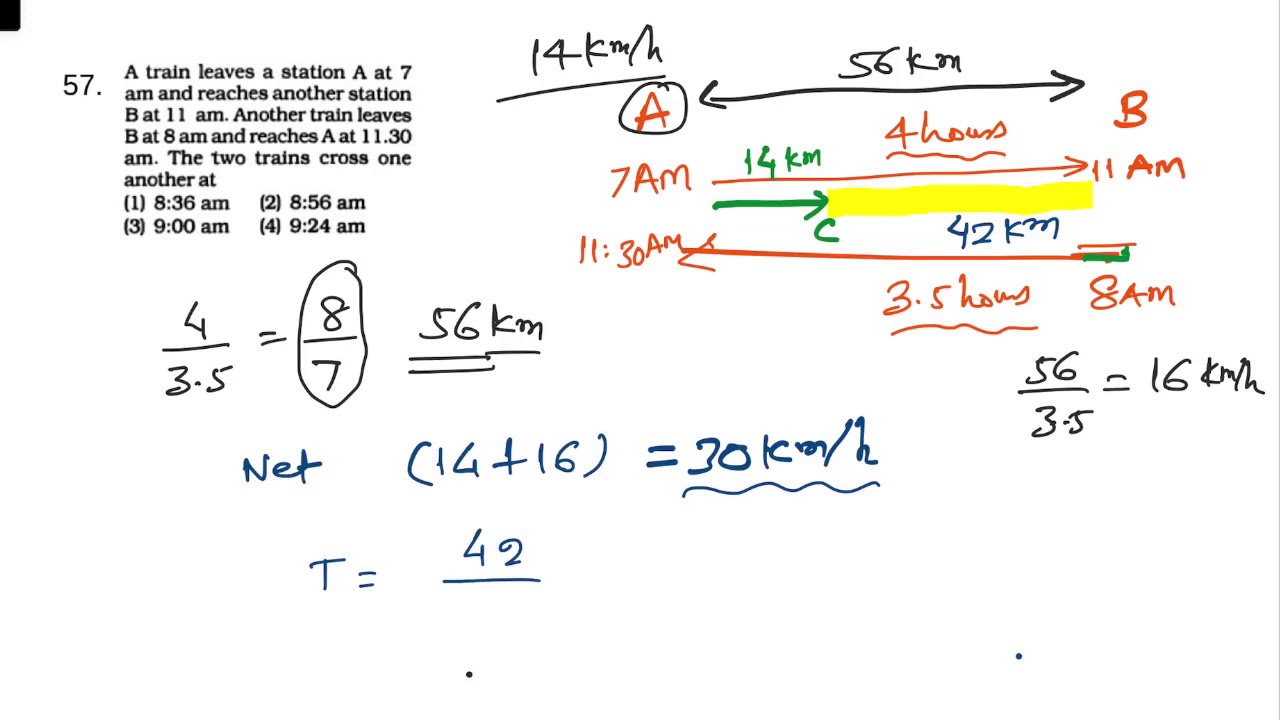 57.
A train leaves a station A at 7
am and reaches another station
B at 11 am. Another train leaves
B at 8 am and reaches A at 11.30
am. The two trains cross one
another at
(1) 8:36 am (2) 8:56 am
(3) 9:00 am (4) 9:24 am
14 Km/h
56 Km
A
B
4 hours
7AM
14 KM
11 AM
C
42 KM
11:30AM
3.5 hours
8AM
4/3.5 = 8/7
56 Km
56/3.5 = 16 Km/h
Net (14+16) = 30 Km/h
T = 42